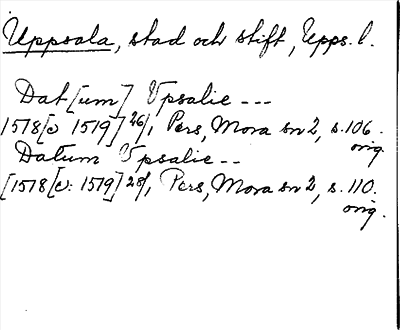 Uppsala, stad och stift, Upps. l.
Dat[um] Vpsalie ---
1518[e: 1519] 26/1, Pers, Mora sn 2, s. 106.
orig.
Datum Vpsalie --
[1518[e: 1519] 28/1, Pers, Mora sn 2, s. 110.
orig.